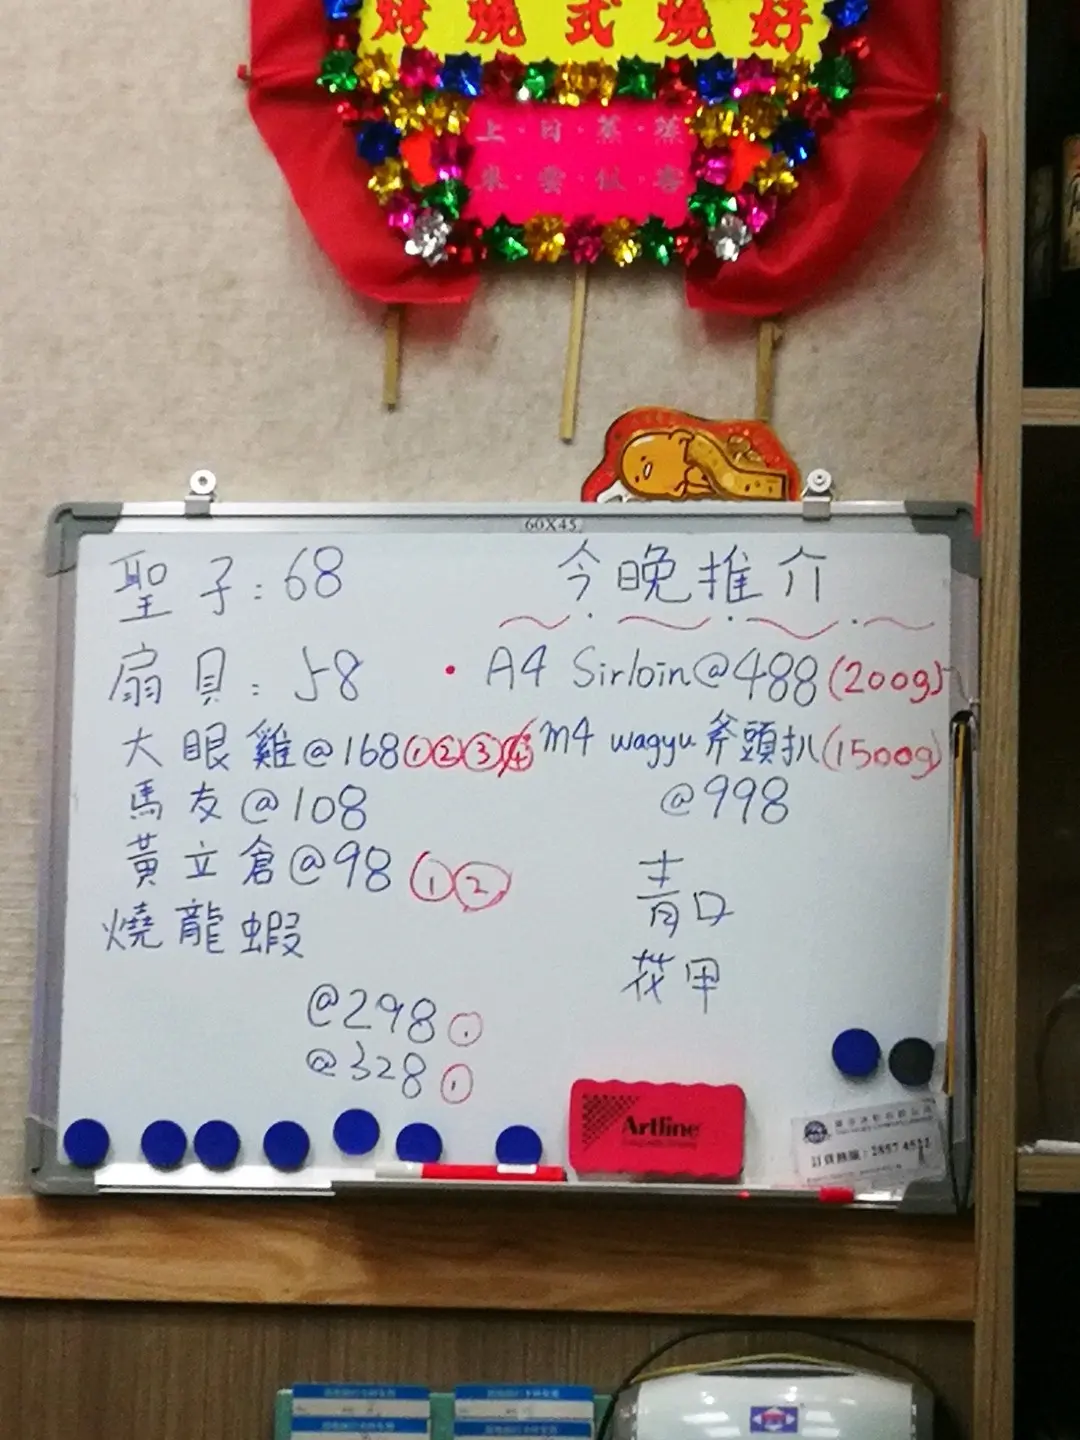 烤燒式燒好
上·日·蒸·蒸
來·雲·似·客
60X45
聖子:68
扇貝:58
大眼雞@168①②③④
馬友@108
黃立倉@98①②
燒龍蝦
@298①
@328①
今晚推介
· A4 Sirloin@488(200g)
m4 wagyu 斧頭扒(1500g)
@998
青口
花甲
Artline
訂貨熱線:2857 4512